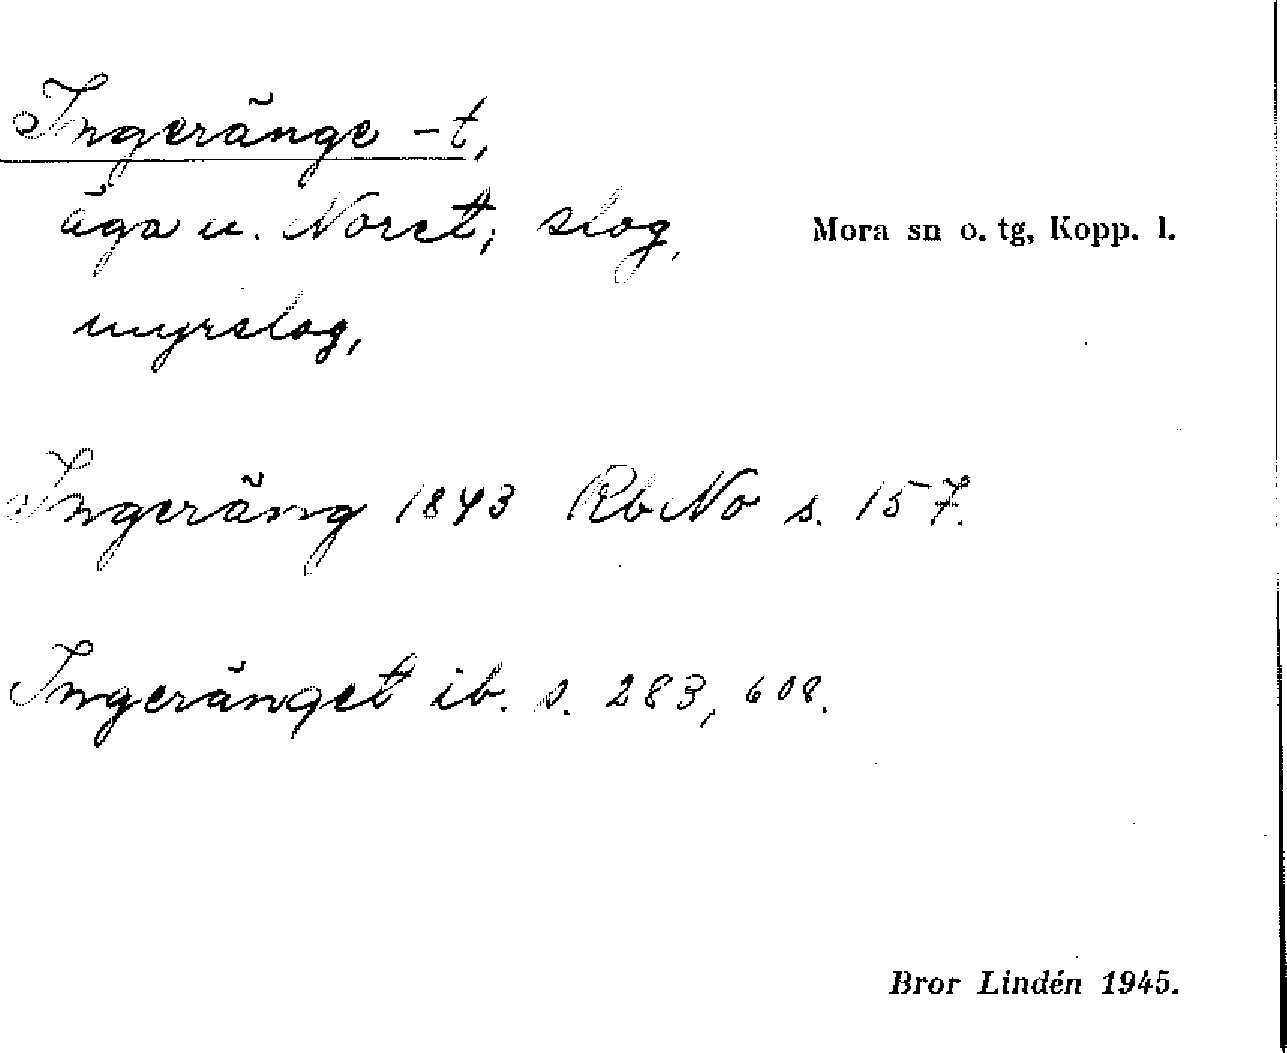 Ingeränge -t,
äga u. Noret; slog,
Mora sn o. tg, Kopp. l.
myrslog,
Ingeräng 1843 RbNo s. 157.
Ingeränget ib. s. 283, 608.
Bror Lindén 1945.